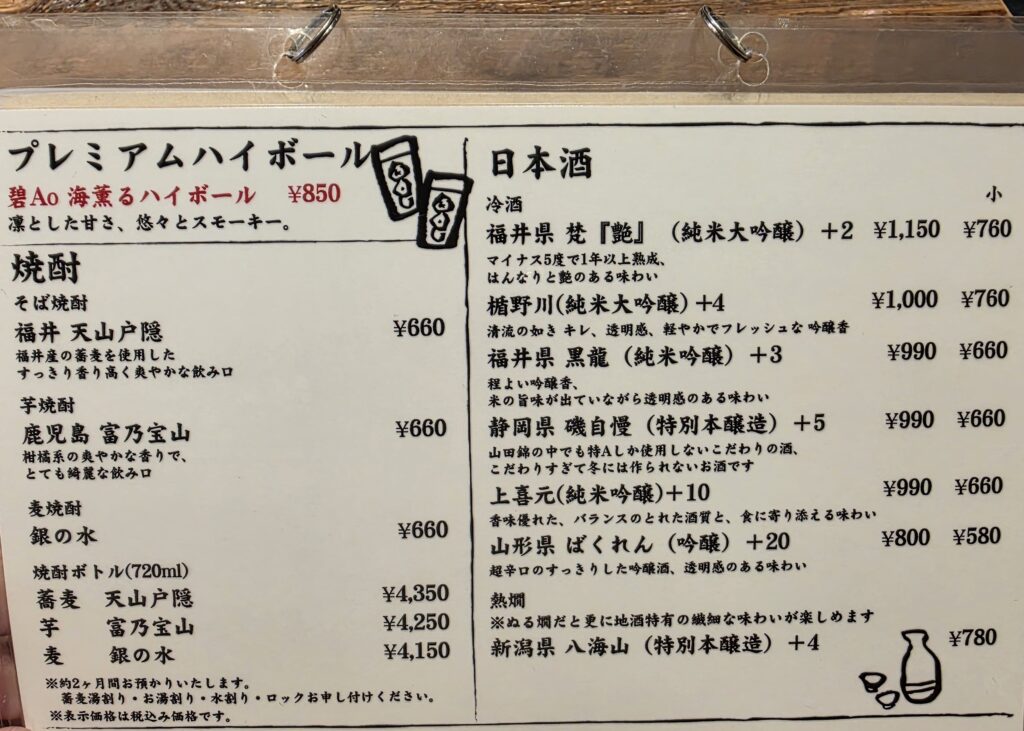 プレミアムハイボール
碧Ao 海薫るハイボール ¥850
凛とした甘さ、悠々とスモーキー。
焼酎
そば焼酎
福井 天山戸隠 ¥660
福井産の蕎麦を使用した
すっきり香り高く爽やかな飲み口
芋焼酎
鹿児島 富乃宝山 ¥660
柑橘系の爽やかな香りで、
とても綺麗な飲み口
麦焼酎
銀の水 ¥660
焼酎ボトル(720ml)
蕎麦 天山戸隠 ¥4,350
芋 富乃宝山 ¥4,250
麦 銀の水 ¥4,150
※約2ヶ月間お預かりいたします。
蕎麦湯割り・お湯割り・水割り・ロックお申し付けください。
※表示価格は税込み価格です。
日本酒
冷酒 小
福井県 梵『艶』(純米大吟醸)+2 ¥1,150 ¥760
マイナス5度で1年以上熟成、
はんなりと艶のある味わい
楯野川(純米大吟醸)+4 ¥1,000 ¥760
清流の如き キレ、透明感、軽やかでフレッシュな 吟醸香
福井県 黒龍(純米吟醸)+3 ¥990 ¥660
程よい吟醸香、
米の旨味が出ていながら透明感のある味わい
静岡県 磯自慢(特別本醸造)+5 ¥990 ¥660
山田錦の中でも特Aしか使用しないこだわりの酒、
こだわりすぎて冬には作られないお酒です
上喜元(純米吟醸)+10 ¥990 ¥660
香味優れた、バランスのとれた酒質と、食に寄り添える味わい
山形県 ばくれん(吟醸)+20 ¥800 ¥580
超辛口のすっきりした吟醸酒、透明感のある味わい
熱燗
※ぬる燗だと更に地酒特有の繊細な味わいが楽しめます
新潟県 八海山(特別本醸造)+4 ¥780